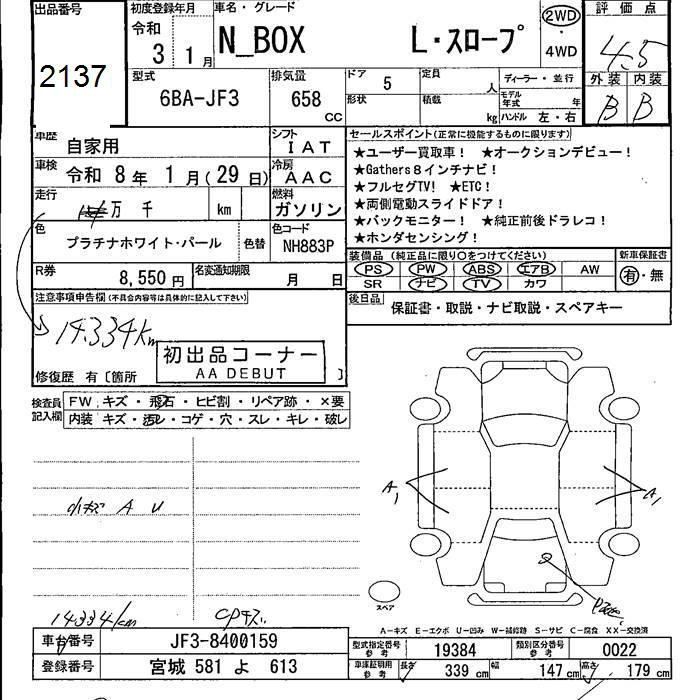 出品番号
2137
初度登録年月
令和
3年 1月
車名・グレード
N_BOX L・スロープ
2WD
・
4WD
評価点
4.5
外装 内装
B B
型式
6BA-JF3
排気量
658
CC
ドア 5
形状
定員 人
積載 kg
ディーラー・並行
モデル年式 年
ハンドル 左・右
車歴 自家用
シフト
IAT
車検 令和 8年 1月(29日)
冷房
AAC
走行 万 千 km
燃料
ガソリン
色 プラチナホワイト・パール
色替
色コード
NH883P
R券 8,550円
名変通知期限 月 日
セールスポイント(正常に機能するものに限ります)
★ユーザー買取車! ★オークションデビュー!
★Gathers8インチナビ!
★フルセグTV! ★ETC!
★両側電動スライドドア!
★バックモニター! ★純正前後ドラレコ!
★ホンダセンシング!
装備品(純正品に限り○をつけてください)
PS PW ABS エアB AW
SR ナビ TV カワ
新車保証書
有・無
後日品 保証書・取説・ナビ取説・スペアキー
注意事項申告欄(不具合内容等は具体的に記入して下さい)
14.334km
初出品コーナー
AA DEBUT
修復歴 有〔箇所 〕
検査員
記入欄
FW キズ・飛石・ヒビ割・リペア跡・×要
内装 キズ・汚レ・コゲ・穴・スレ・キレ・破レ
小キズ A U
A1
A1
14334km
スペア
A-キズ E-エクボ U-凹み W-補修跡 S-サビ C-腐食 XX-交換済
車台番号 JF3-8400159
登録番号 宮城 581 よ 613
型式指定番号
参考
19384
類別区分番号
参考
0022
車庫証明用
参考
長さ 339 cm 幅 147 cm 高さ 179 cm